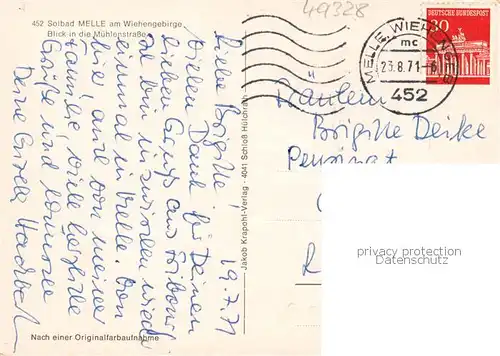 49328
452 Solbad MELLE am Wiehengebirge
Blick in die Mühlenstraße
19.7.71
Liebe Brigitte!
Vielen Dank für Deinen
lieben Gruß aus Fribourg
bin inzwischen wieder
einmal in Melle. Von
hier aus von meiner
Familie viele herzliche
Grüße und
Deine Gisela
Nach einer Originalfarbaufnahme
Jakob Krapohl-Verlag - 4041 Schloß Hülchrath
MELLE, WIEHENGEB
mc
23.8.71
452
30
DEUTSCHE BUNDESPOST
Fräulein
Brigitte Deike
Pensinat
R
privacy protection
Datenschutz